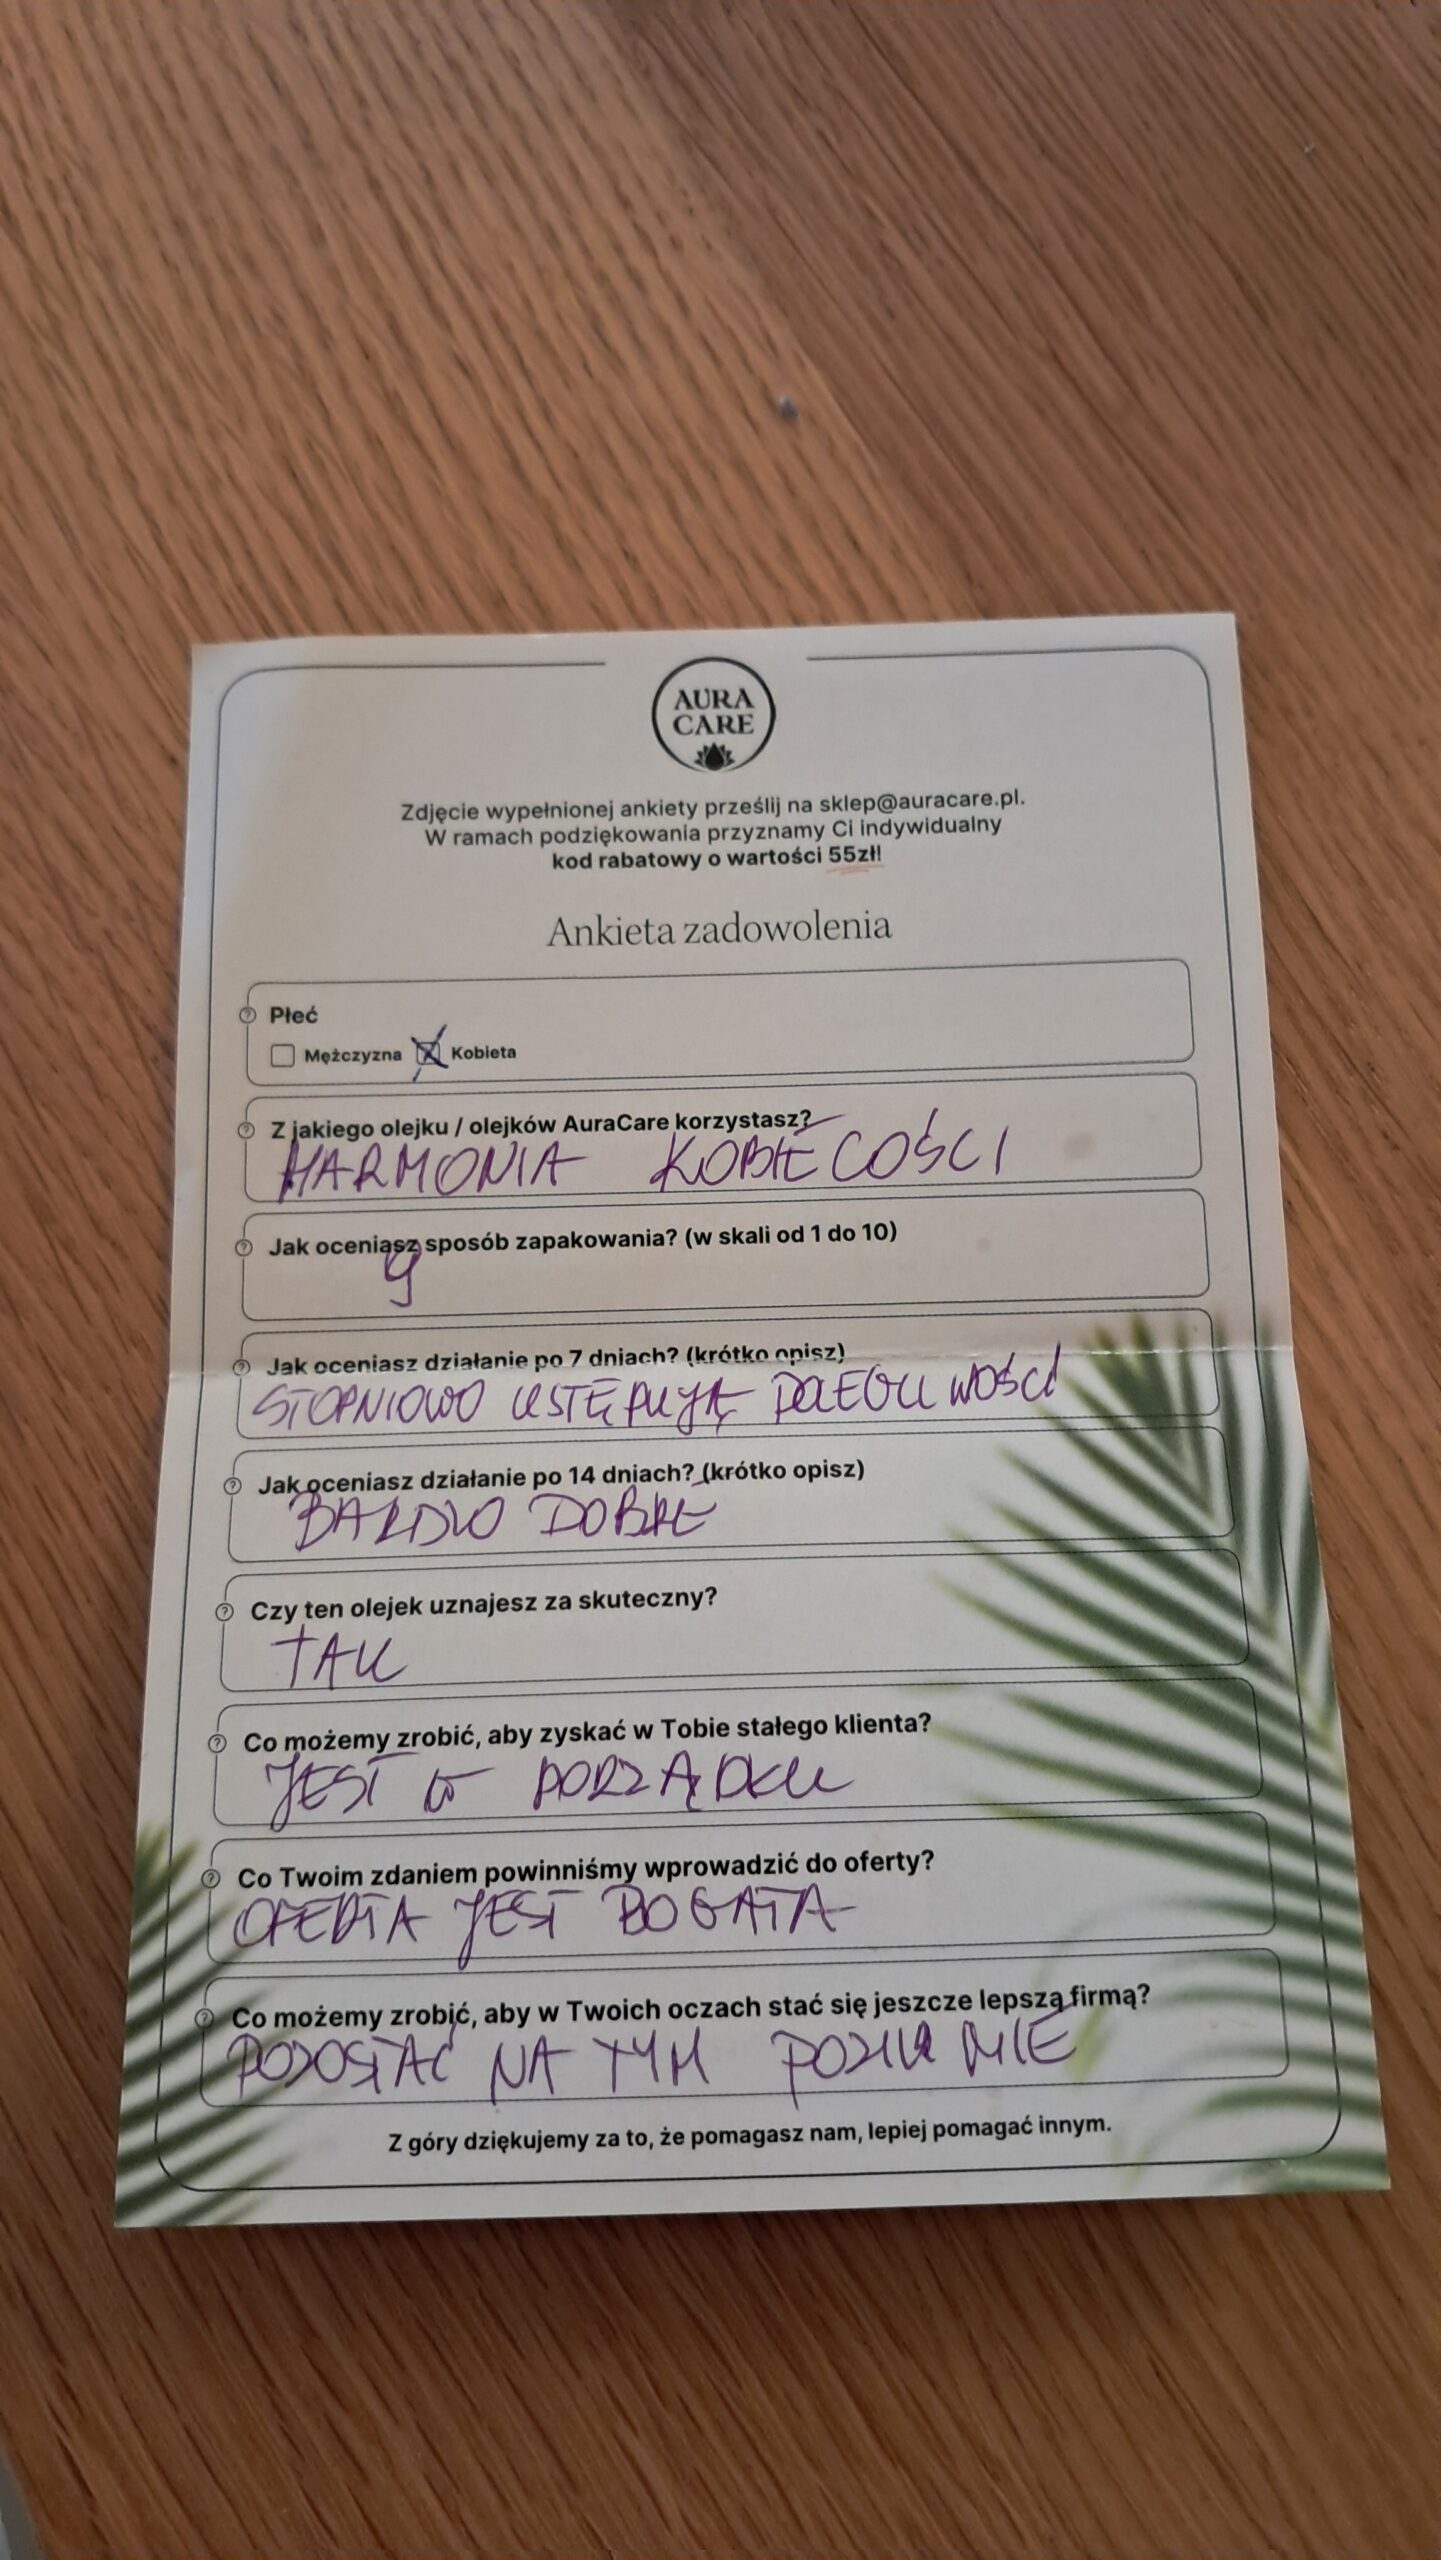 AURA
CARE
Zdjęcie wypełnionej ankiety prześlij na sklep@auracare.pl.
W ramach podziękowania przyznamy Ci indywidualny
kod rabatowy o wartości 55zł!
Ankieta zadowolenia
Płeć
Mężczyzna Kobieta
Z jakiego olejku / olejków AuraCare korzystasz?
HARMONIA KOBIECOŚCI
Jak oceniasz sposób zapakowania? (w skali od 1 do 10)
9
Jak oceniasz działanie po 7 dniach? (krótko opisz)
STOPNIOWO USTĘPUJĄ DOLEGLIWOŚCI
Jak oceniasz działanie po 14 dniach? (krótko opisz)
BARDZO DOBRE
Czy ten olejek uznajesz za skuteczny?
TAK
Co możemy zrobić, aby zyskać w Tobie stałego klienta?
JEST W PORZĄDKU
Co Twoim zdaniem powinniśmy wprowadzić do oferty?
OFERTA JEST BOGATA
Co możemy zrobić, aby w Twoich oczach stać się jeszcze lepszą firmą?
POZOSTAĆ NA TYM POZIOMIE
Z góry dziękujemy za to, że pomagasz nam, lepiej pomagać innym.